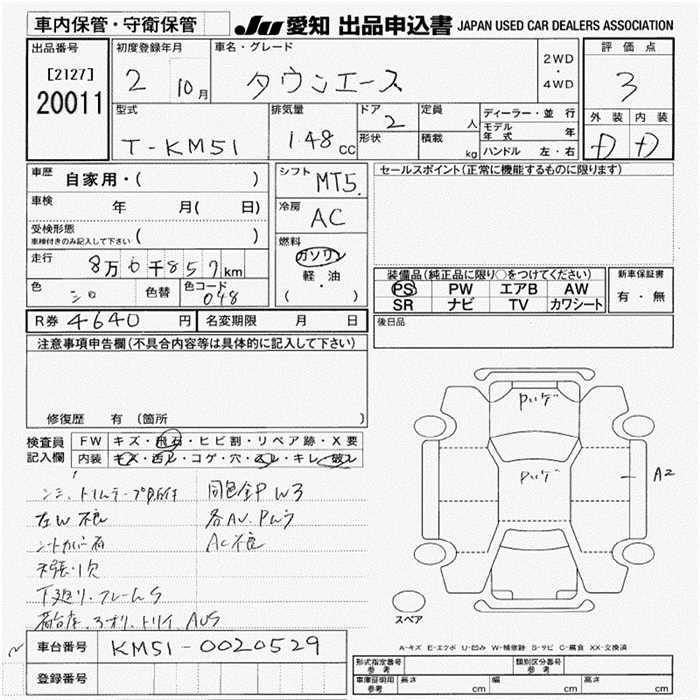 車内保管・守衛保管
JU 愛知 出品申込書 JAPAN USED CAR DEALERS ASSOCIATION
出品番号
[2127]
20011
初度登録年月
2 10月
車名・グレード
タウンエース
2WD
・
4WD
評価点
3
外装 内装
D D
型式
T-KM51
排気量
1.48 cc
ドア
2
形状
定員
人
積載
kg
ディーラー・並行
モデル年式 年
ハンドル 左・右
車歴
自家用・( )
車検
年 月( 日)
受検形態
車検付きのみ記入して下さい ( )
走行
8万 0千857km
色
シロ
色替
色コード
048
シフト
MT5.
冷房
AC
燃料
ガソリン
軽・油
( )
セールスポイント(正常に機能するものに限ります)
装備品(純正品に限り○をつけてください)
PS PW エアB AW
SR ナビ TV カワシート
新車保証書
有・無
R券 4640 円 名変期限 月 日
後日品
注意事項申告欄(不具合内容等は具体的に記入して下さい)
修復歴 有(箇所 )
検査員記入欄
FW キズ・飛石・ヒビ割・リペア跡・X要
内装 キズ・汚レ・コゲ・穴・スレ・キレ・破レ
同色全P W3
左W不良
AC不良
AC不良
A2
スペア
A-キズ E-エクボ U-凹み W-補修跡 S-サビ C-腐食 XX-交換済
車台番号 KM51-0020529
登録番号
形式指定番号
参考
類別区分番号
参考
車庫証明用
参考
長さ cm 幅 cm 高さ cm